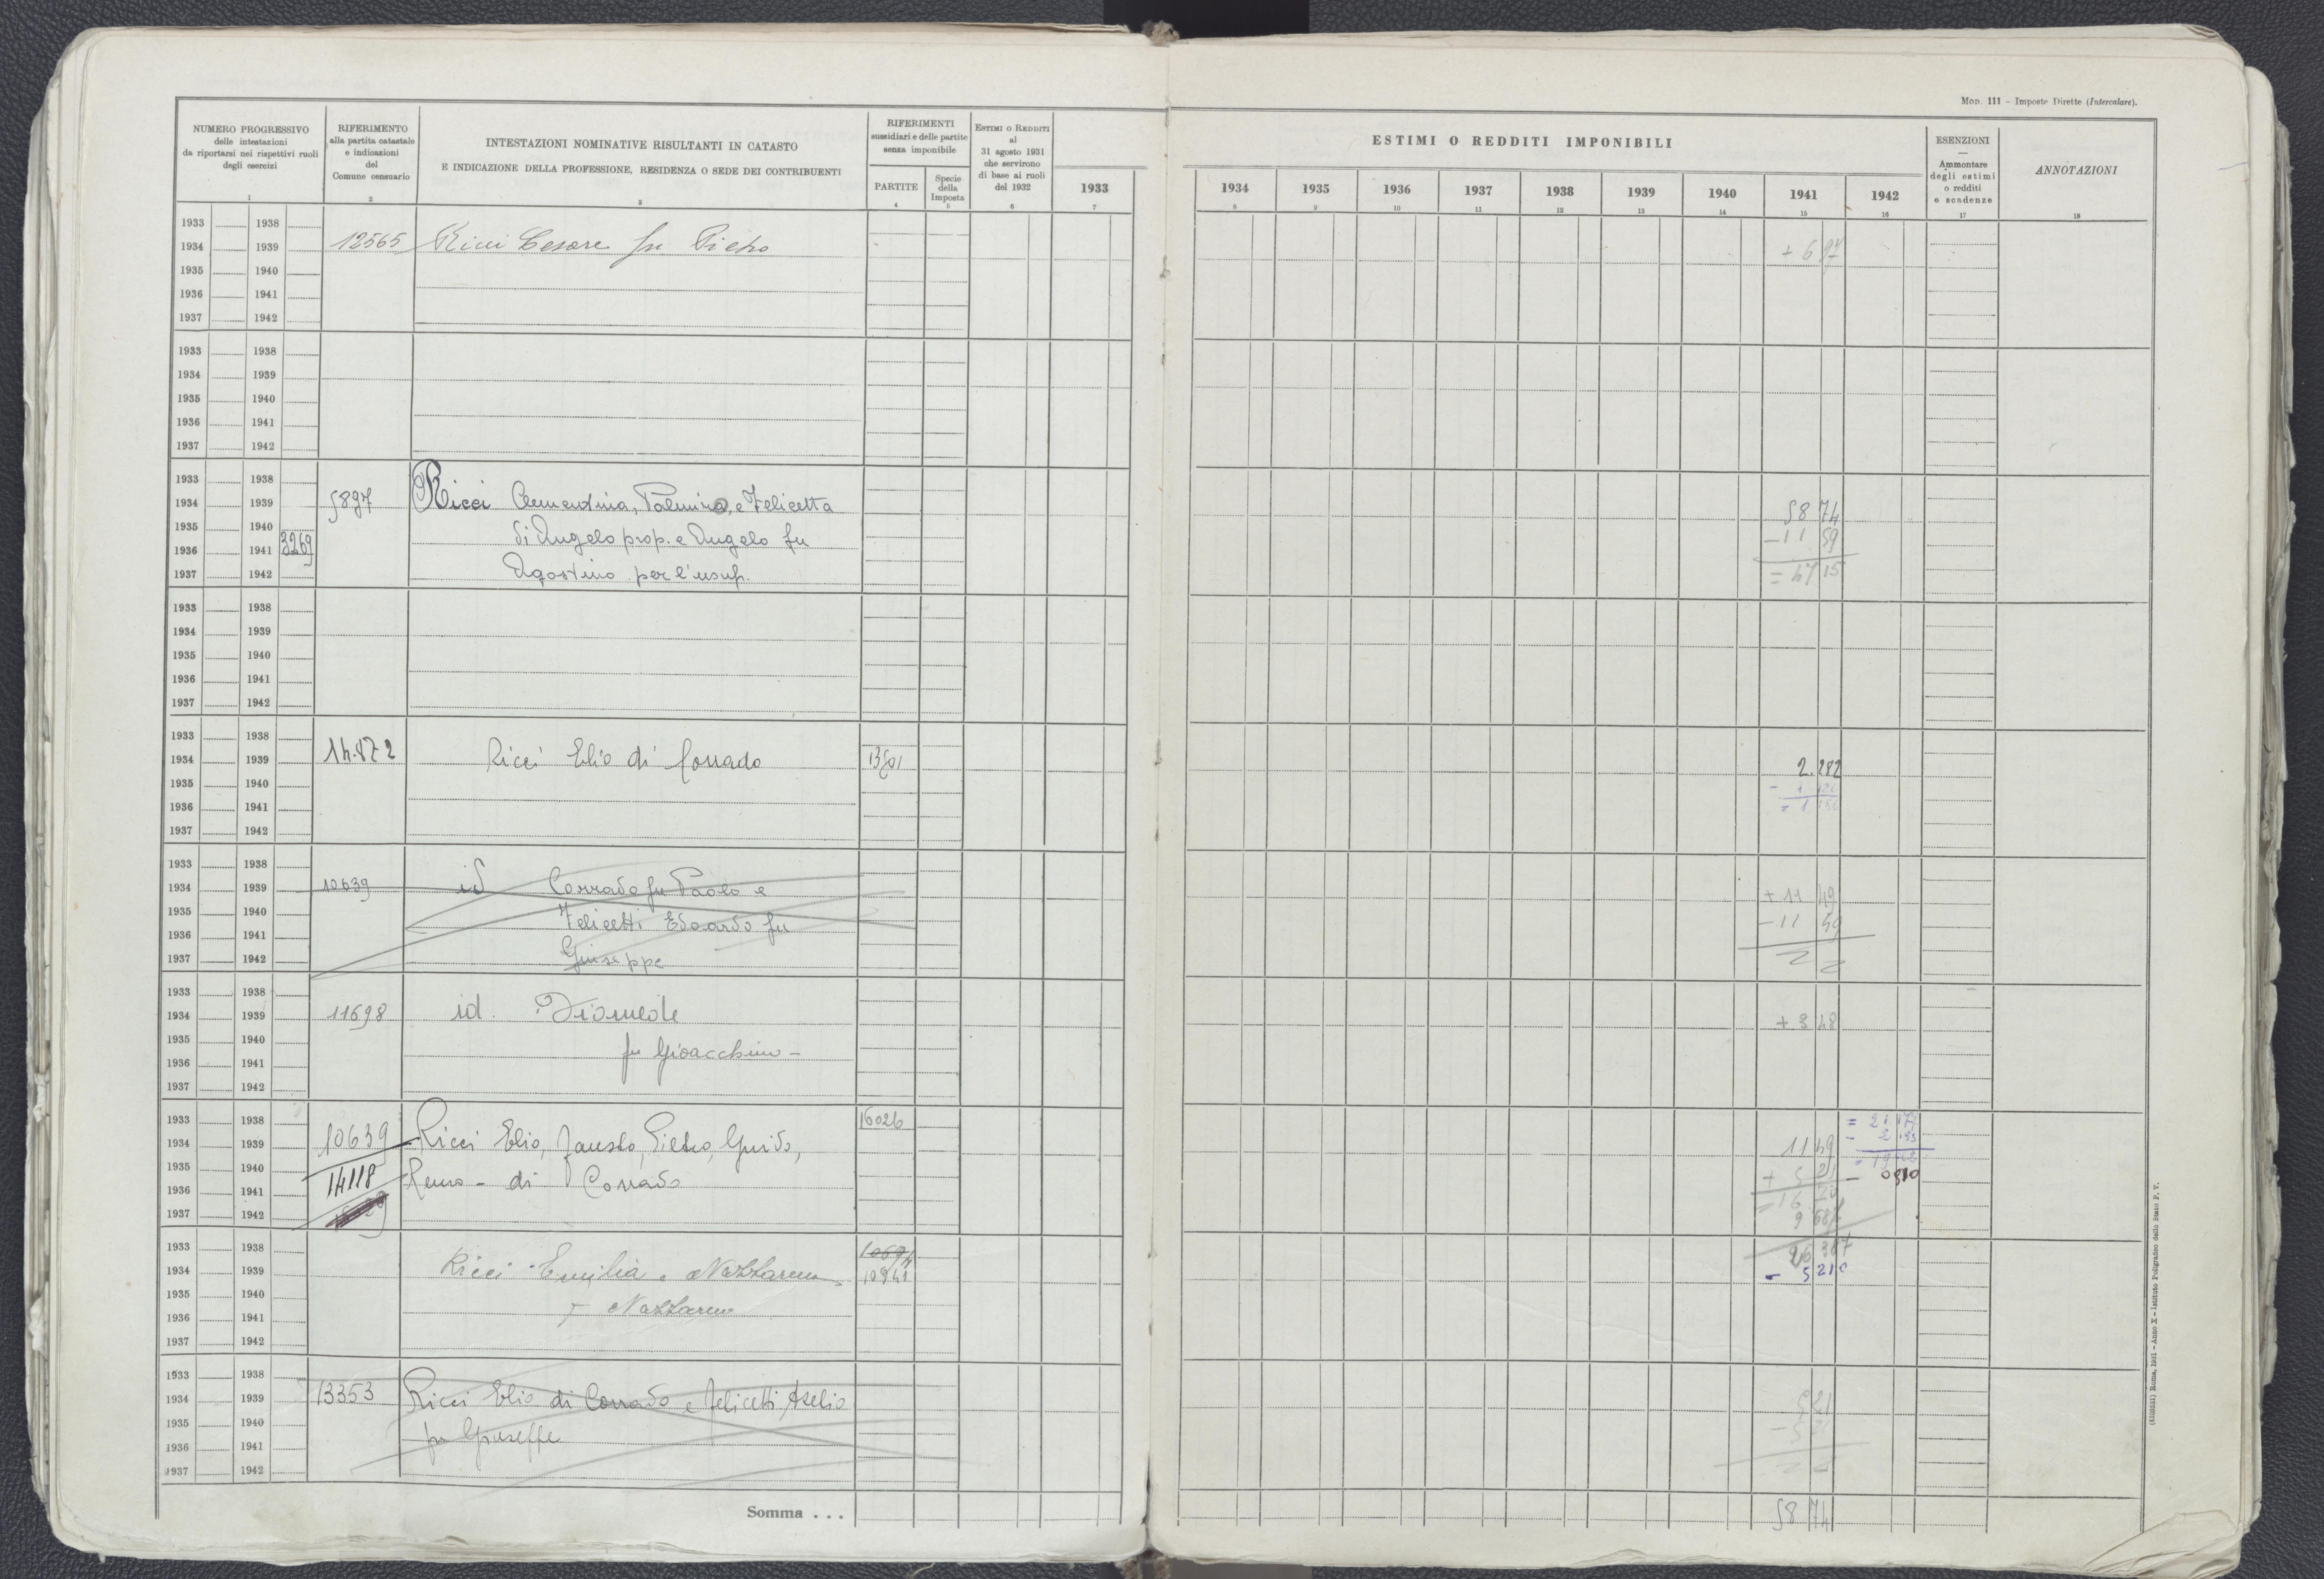 Mod. 111 - Imposte Dirette (Intercalare).
NUMERO PROGRESSIVO
delle intestazioni
da riportarsi nei rispettivi ruoli
degli esercizi
1
RIFERIMENTO
alla partita catastale
e indicazioni
del
Comune censuario
2
INTESTAZIONI NOMINATIVE RISULTANTI IN CATASTO
E INDICAZIONE DELLA PROFESSIONE, RESIDENZA O SEDE DEI CONTRIBUENTI
3
RIFERIMENTI
sussidiari e delle partite
senza imponibile
PARTITE
4
Specie
della
Imposta
5
Estimi o Redditi
al
31 agosto 1931
che servirono
di base ai ruoli
del 1932
6
1933
7
ESTIMI O REDDITI IMPONIBILI
1934 1935 1936 1937 1938 1939 1940 1941 1942
8 9 10 11 12 13 14 15 16
ESENZIONI
—
Ammontare
degli estimi
o redditi
e scadenze
17
ANNOTAZIONI
18
1933 1938
1934 1939 12565 Ricci Cesare fu Pietro + 6 97
1935 1940
1936 1941
1937 1942
1933 1938
1934 1939
1935 1940
1936 1941
1937 1942
1933 1938
1934 1939 5897 Ricci Clementina, Palmira, e Felicetta 58 74
1935 1940 di Angelo prop. e Angelo fu - 11 59
1936 1941 3269
1937 1942 Agostino per l'usuf. = 47 15
1933 1938
1934 1939
1935 1940
1936 1941
1937 1942
1933 1938
1934 1939 14.872 Ricci Elio di Corrado 2.282
1935 1940
1936 1941
1937 1942
1933 1938
1934 1939 10639 id Corrado fu Paolo e + 11 49
1935 1940 Felicetti Edoardo fu - 11 59
1936 1941
1937 1942 Giuseppe
1933 1938
1934 1939 11698 id. Diomede + 3 48
1935 1940 fu Gioacchino -
1936 1941
1937 1942
1933 1938 16026
1934 1939 10639 Ricci Elio, Fausto, Pietro, Guido, 11 49
1935 1940 14118 Remo - di Corrado
1936 1941
1937 1942
1933 1938
1934 1939 Ricci Emilia e Nazzareno 10941
1935 1940 Nazzareno - 5 210
1936 1941
1937 1942
1933 1938
1934 1939 13353 Ricci Elio di Corrado e Felicetti Aselio 5 21
1935 1940 fu Giuseppe
1936 1941
1937 1942
Somma . . . 58 74
(4103451) Roma, 1931 - Anno X - Istituto Poligrafico dello Stato P. V.